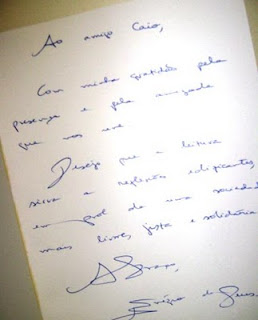 Ao amigo Caio,
Com minha gratidão pela
presença e pela amizade
que nos une
Desejo que a leitura
sirva a reflexões edificantes,
em prol de uma sociedade
mais livre, justa e solidária
Abraço,